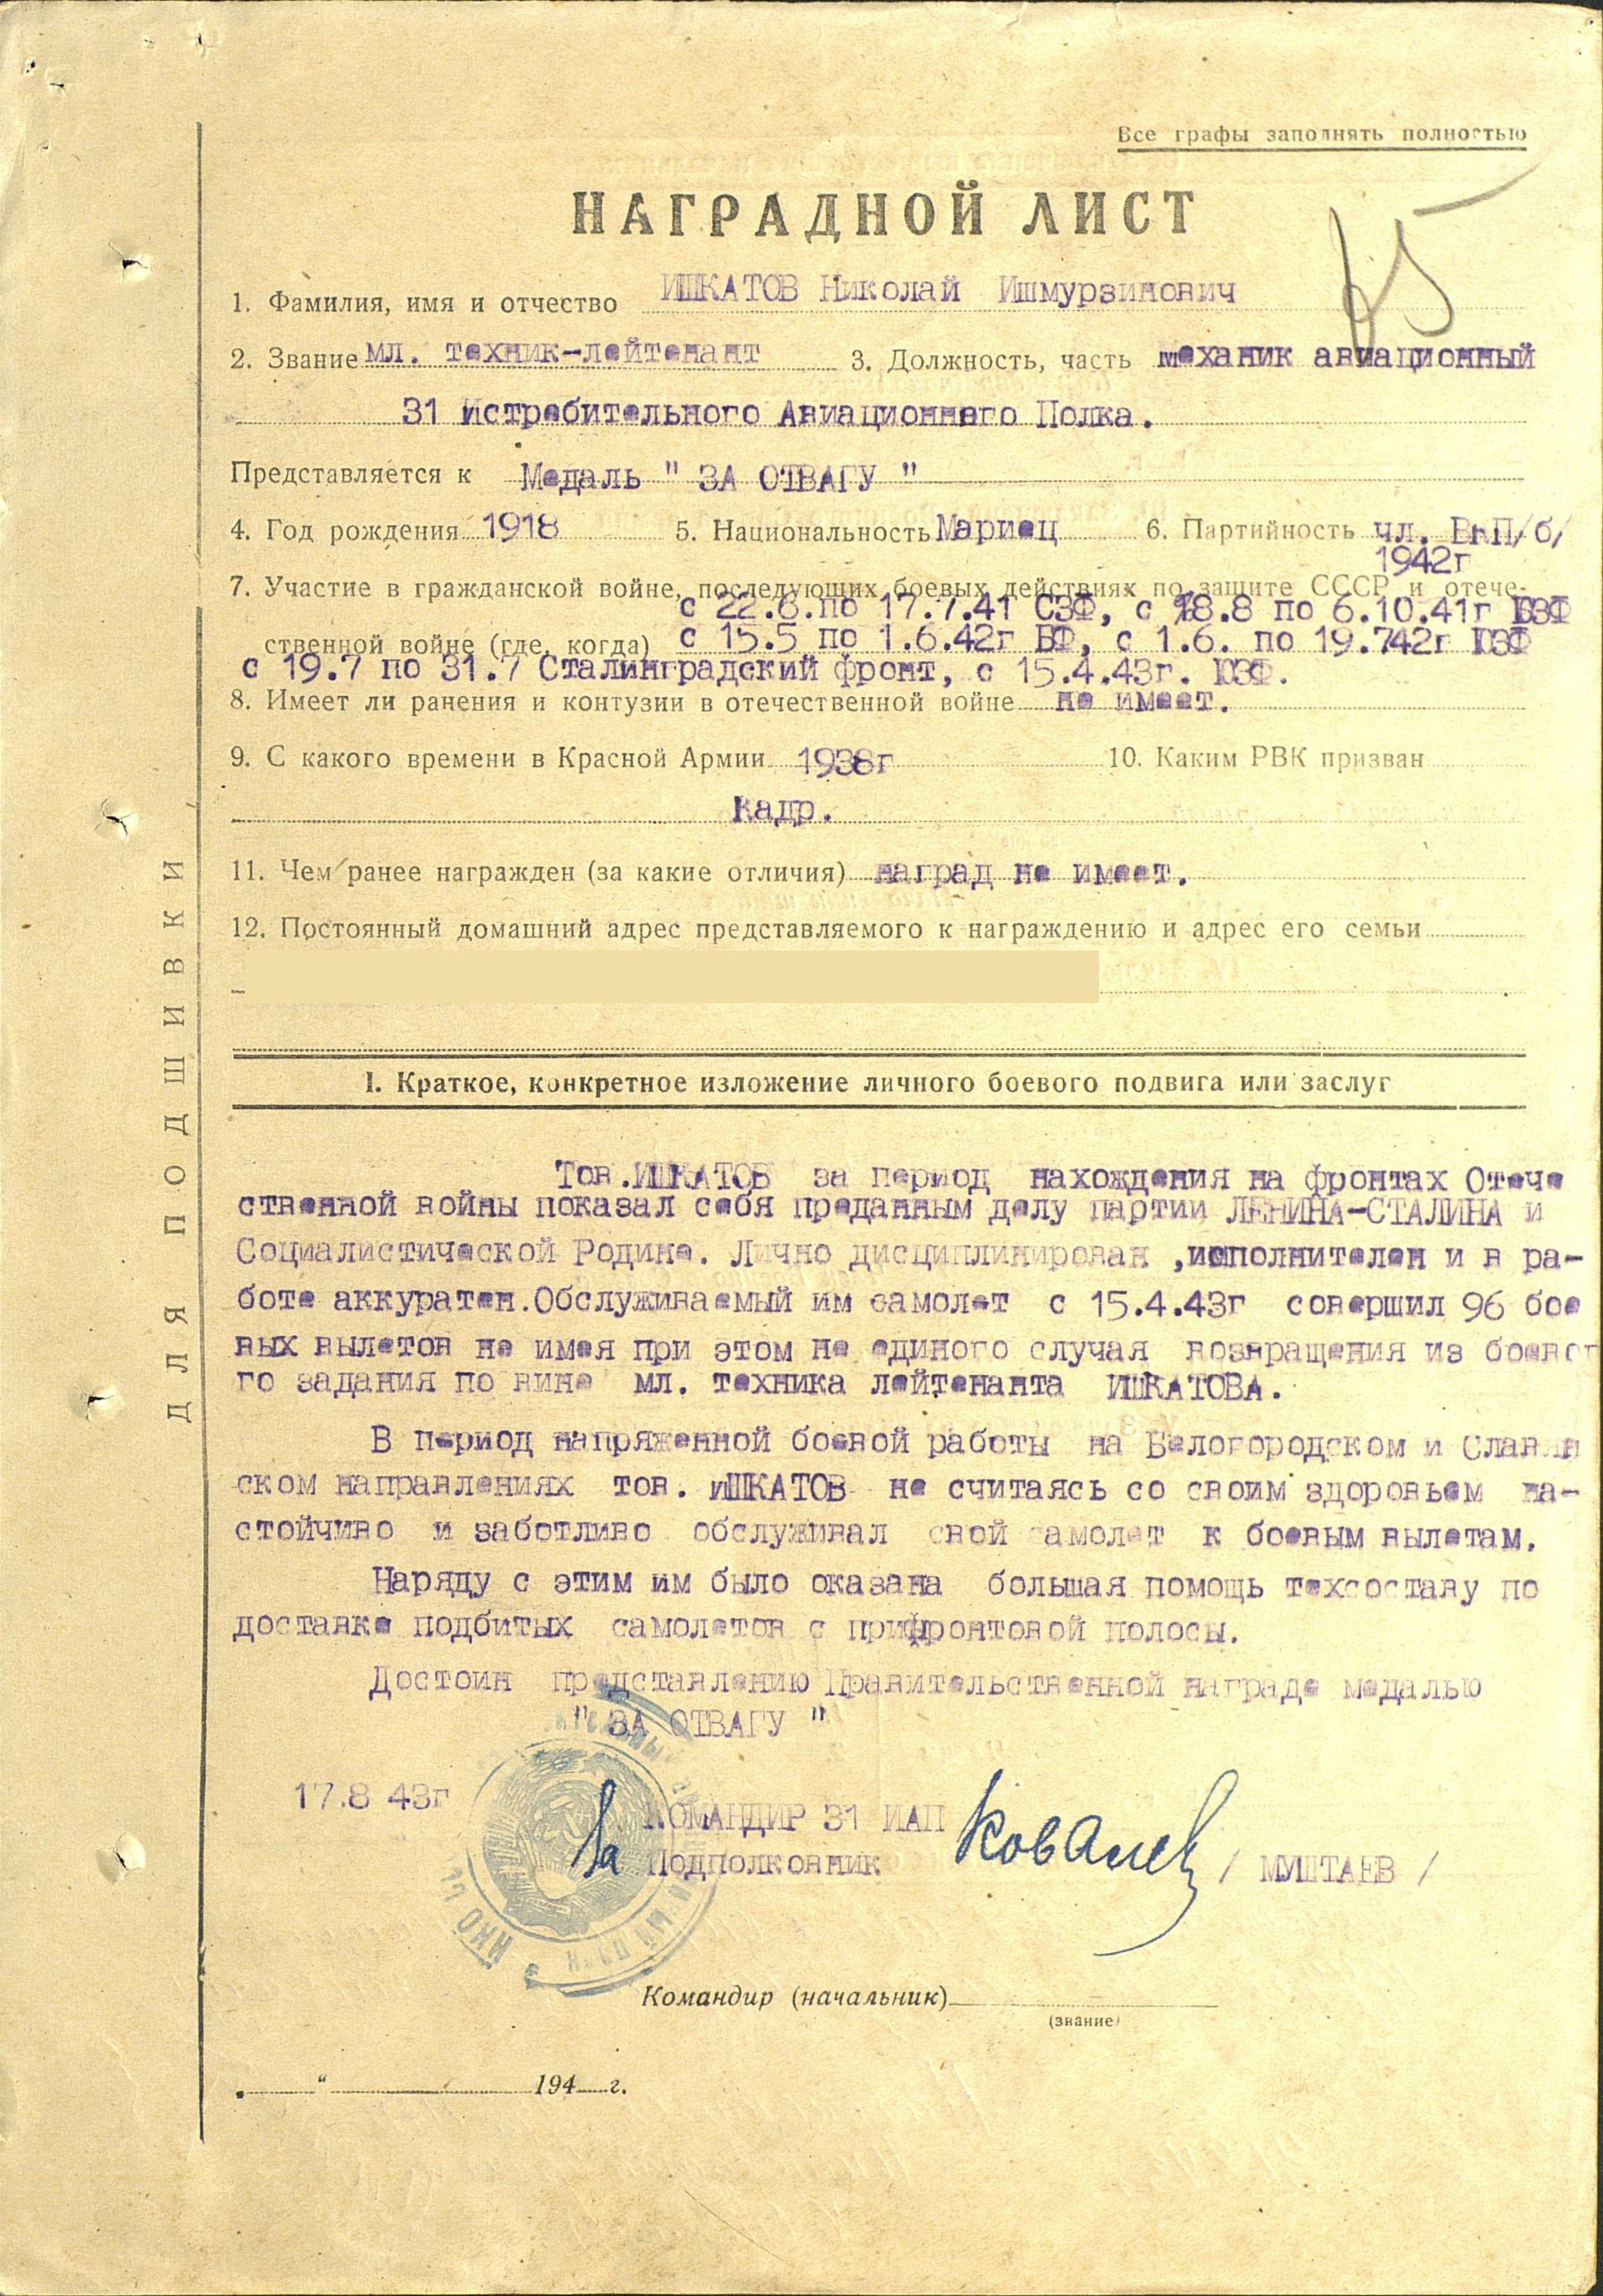 Все графы заполнять полностью
НАГРАДНОЙ ЛИСТ
1. Фамилия, имя и отчество ИШКАТОВ Николай Ишмурзинович
2. Звание мл. техник-лейтенант 3. Должность, часть механик авиационный
31 Истребительного Авиационнаго Полка.
Представляется к Медаль " ЗА ОТВАГУ "
4. Год рождения 1918 5. Национальность Мариец 6. Партийность чл. ВкП/б/
1942г
7. Участие в гражданской войне, последующих боевых действиях по защите СССР и отече-
с 22.6.по 17.7.41 СЗФ, с 18.8 по 6.10.41г ЮЗФ
ственной войне (где, когда) с 15.5 по 1.6.42г БФ, с 1.6. по 19.742г ЮЗФ
с 19.7 по 31.7 Сталинградский фронт, с 15.4.43г. ЮЗФ.
8. Имеет ли ранения и контузии в отечественной войне не имеет.
9. С какого времени в Красной Армии 1938г 10. Каким РВК призван
Кадр.
11. Чем ранее награжден (за какие отличия) наград не имеет.
12. Постоянный домашний адрес представляемого к награждению и адрес его семьи
ДЛЯ ПОДШИВКИ
I. Краткое, конкретное изложение личного боевого подвига или заслуг
Тов.ИШКАТОВ за период нахождения на фронтах Отече
ственной войны показал себя преданным делу партии ЛЕНИНА-СТАЛИНА и
Социалистической Родине. Лично дисциплинирован ,исполнителен и в ра-
боте аккуратен.Обслуживаемый им самолет с 15.4.43г совершил 96 бое
вых вылетов не имея при этом не единого случая возвращения из боевог
го задания по вине мл. техника лейтенанта ИШКАТОВА.
В период напряженной боевой работы на Белогородском и Славян
ском направлениях тов. иШКАТОВ не считаясь со своим здоровьем на-
стойчиво и заботливо обслуживал свой самолет к боевым вылетам.
Наряду с этим им было оказана большая помощь техсоставу по
доставке подбитых самолетов с прифронтовой полосы.
Достоин представлению Правительственной награде медалью
" ЗА ОТВАГУ "
17.8 43г
КОМАНДИР 31 ИАП
За Подполковник Ковалев / МУШТАЕВ /
НКО
Командир (начальник)
(звание)
„ “ 194 г.